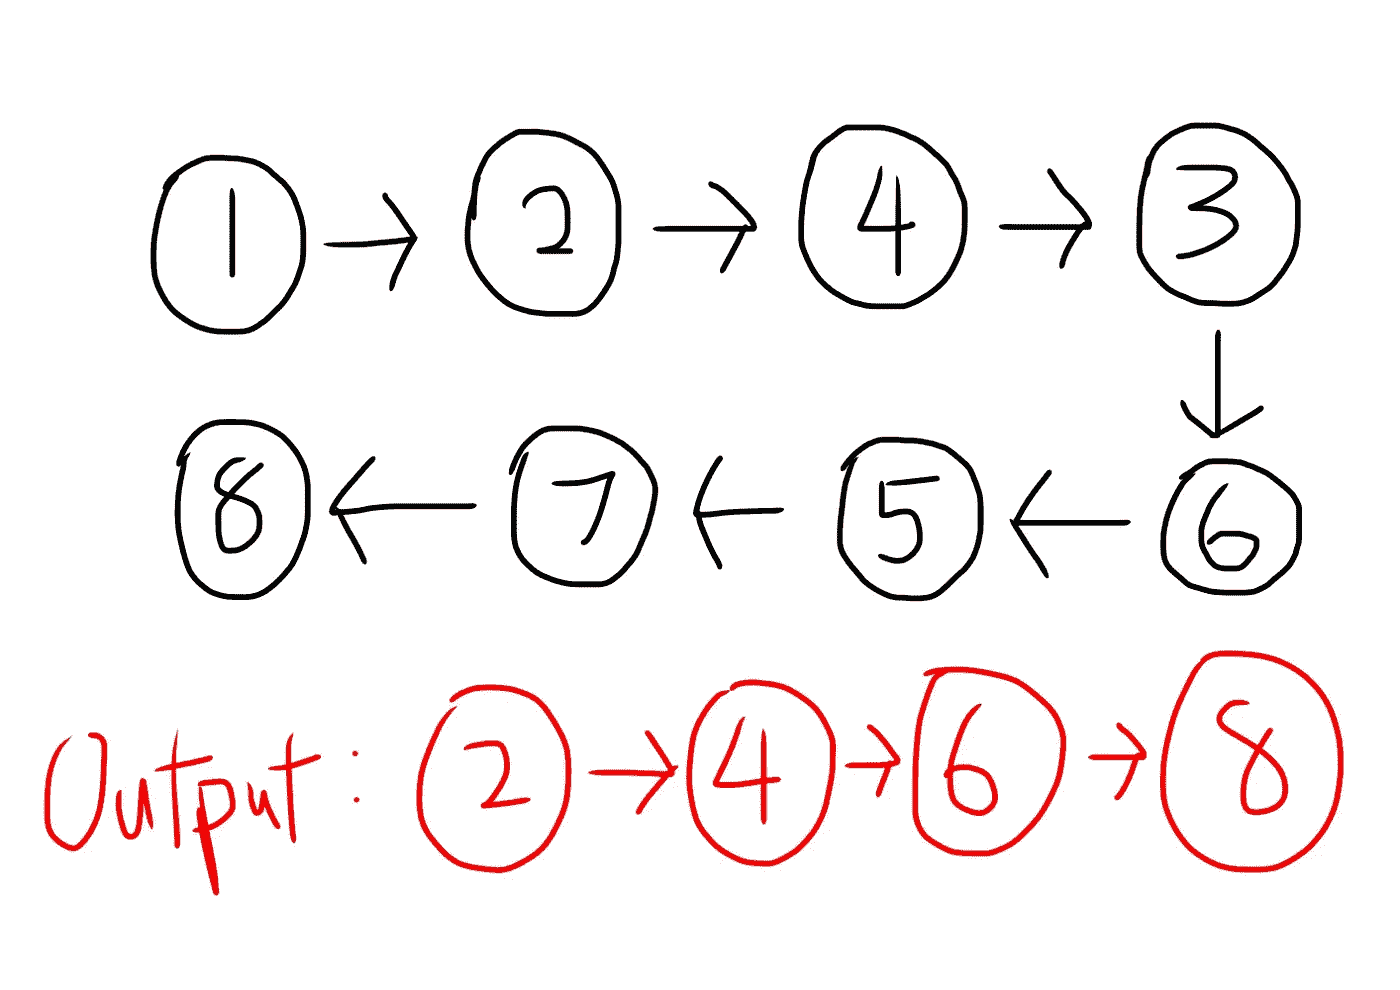 1 → 2 → 4 → 3
↓
8 ← 7 ← 5 ← 6
Output: 2 → 4 → 6 → 8